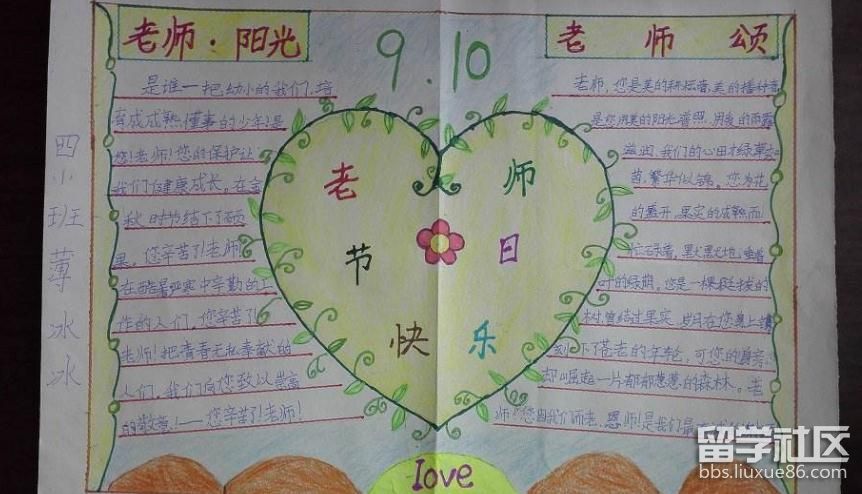 老师·阳光
9.10
老师颂
是谁一把幼小的我们,培
育成成熟懂事的少年?是
您!老师!您的保护让
我们健康成长。在金
秋时节结下了硕
果。您辛苦了!老师!
在酷暑严寒中辛勤的工
作的人们。您辛苦了!
老师!把青春无私奉献的
人们,我们向您致以崇高
的敬意!——您辛苦了!老师!
老师
节日
快乐
老师,您是美的耕耘者,美的播种者
是您用美的阳光普照,用美的雨露
滋润,我们的心田才绿草
茵,繁华似锦。您为花
的盛开,果实的成熟而
忙碌着,默默地,垂着
叶的绿荫,您是一棵挺拔的
树,曾结过果实,岁月在您身上
刻下了苍老的年轮,可您的身旁
却崛起一片郁郁葱葱的森林。老
师!您因我们而老,恩师!是我们最
四小班薄冰冰
love
留学社区
bbs.liuxue86.com